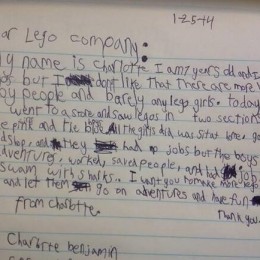 1-25-14
ar Lego company:
y name is charlotte. I am 7 years old and I
s but I dont like that there are more
oy people and barely any lego girls. today
I went to a store and saw legos in two section
e pink and the boys All the girls did was sit at
d shop, and they had no jobs but the boys
dventures, worked, saved people, and had job
swam with sharks. I want you to make more lego
and let them go on adventures and have fun
Thank you.
from charlotte.
Charlotte benjamin